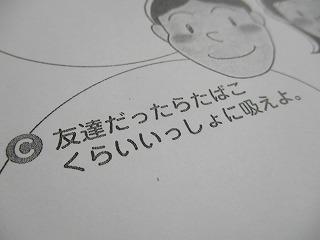 C 友達だったらたばこ
くらいいっしょに吸えよ。